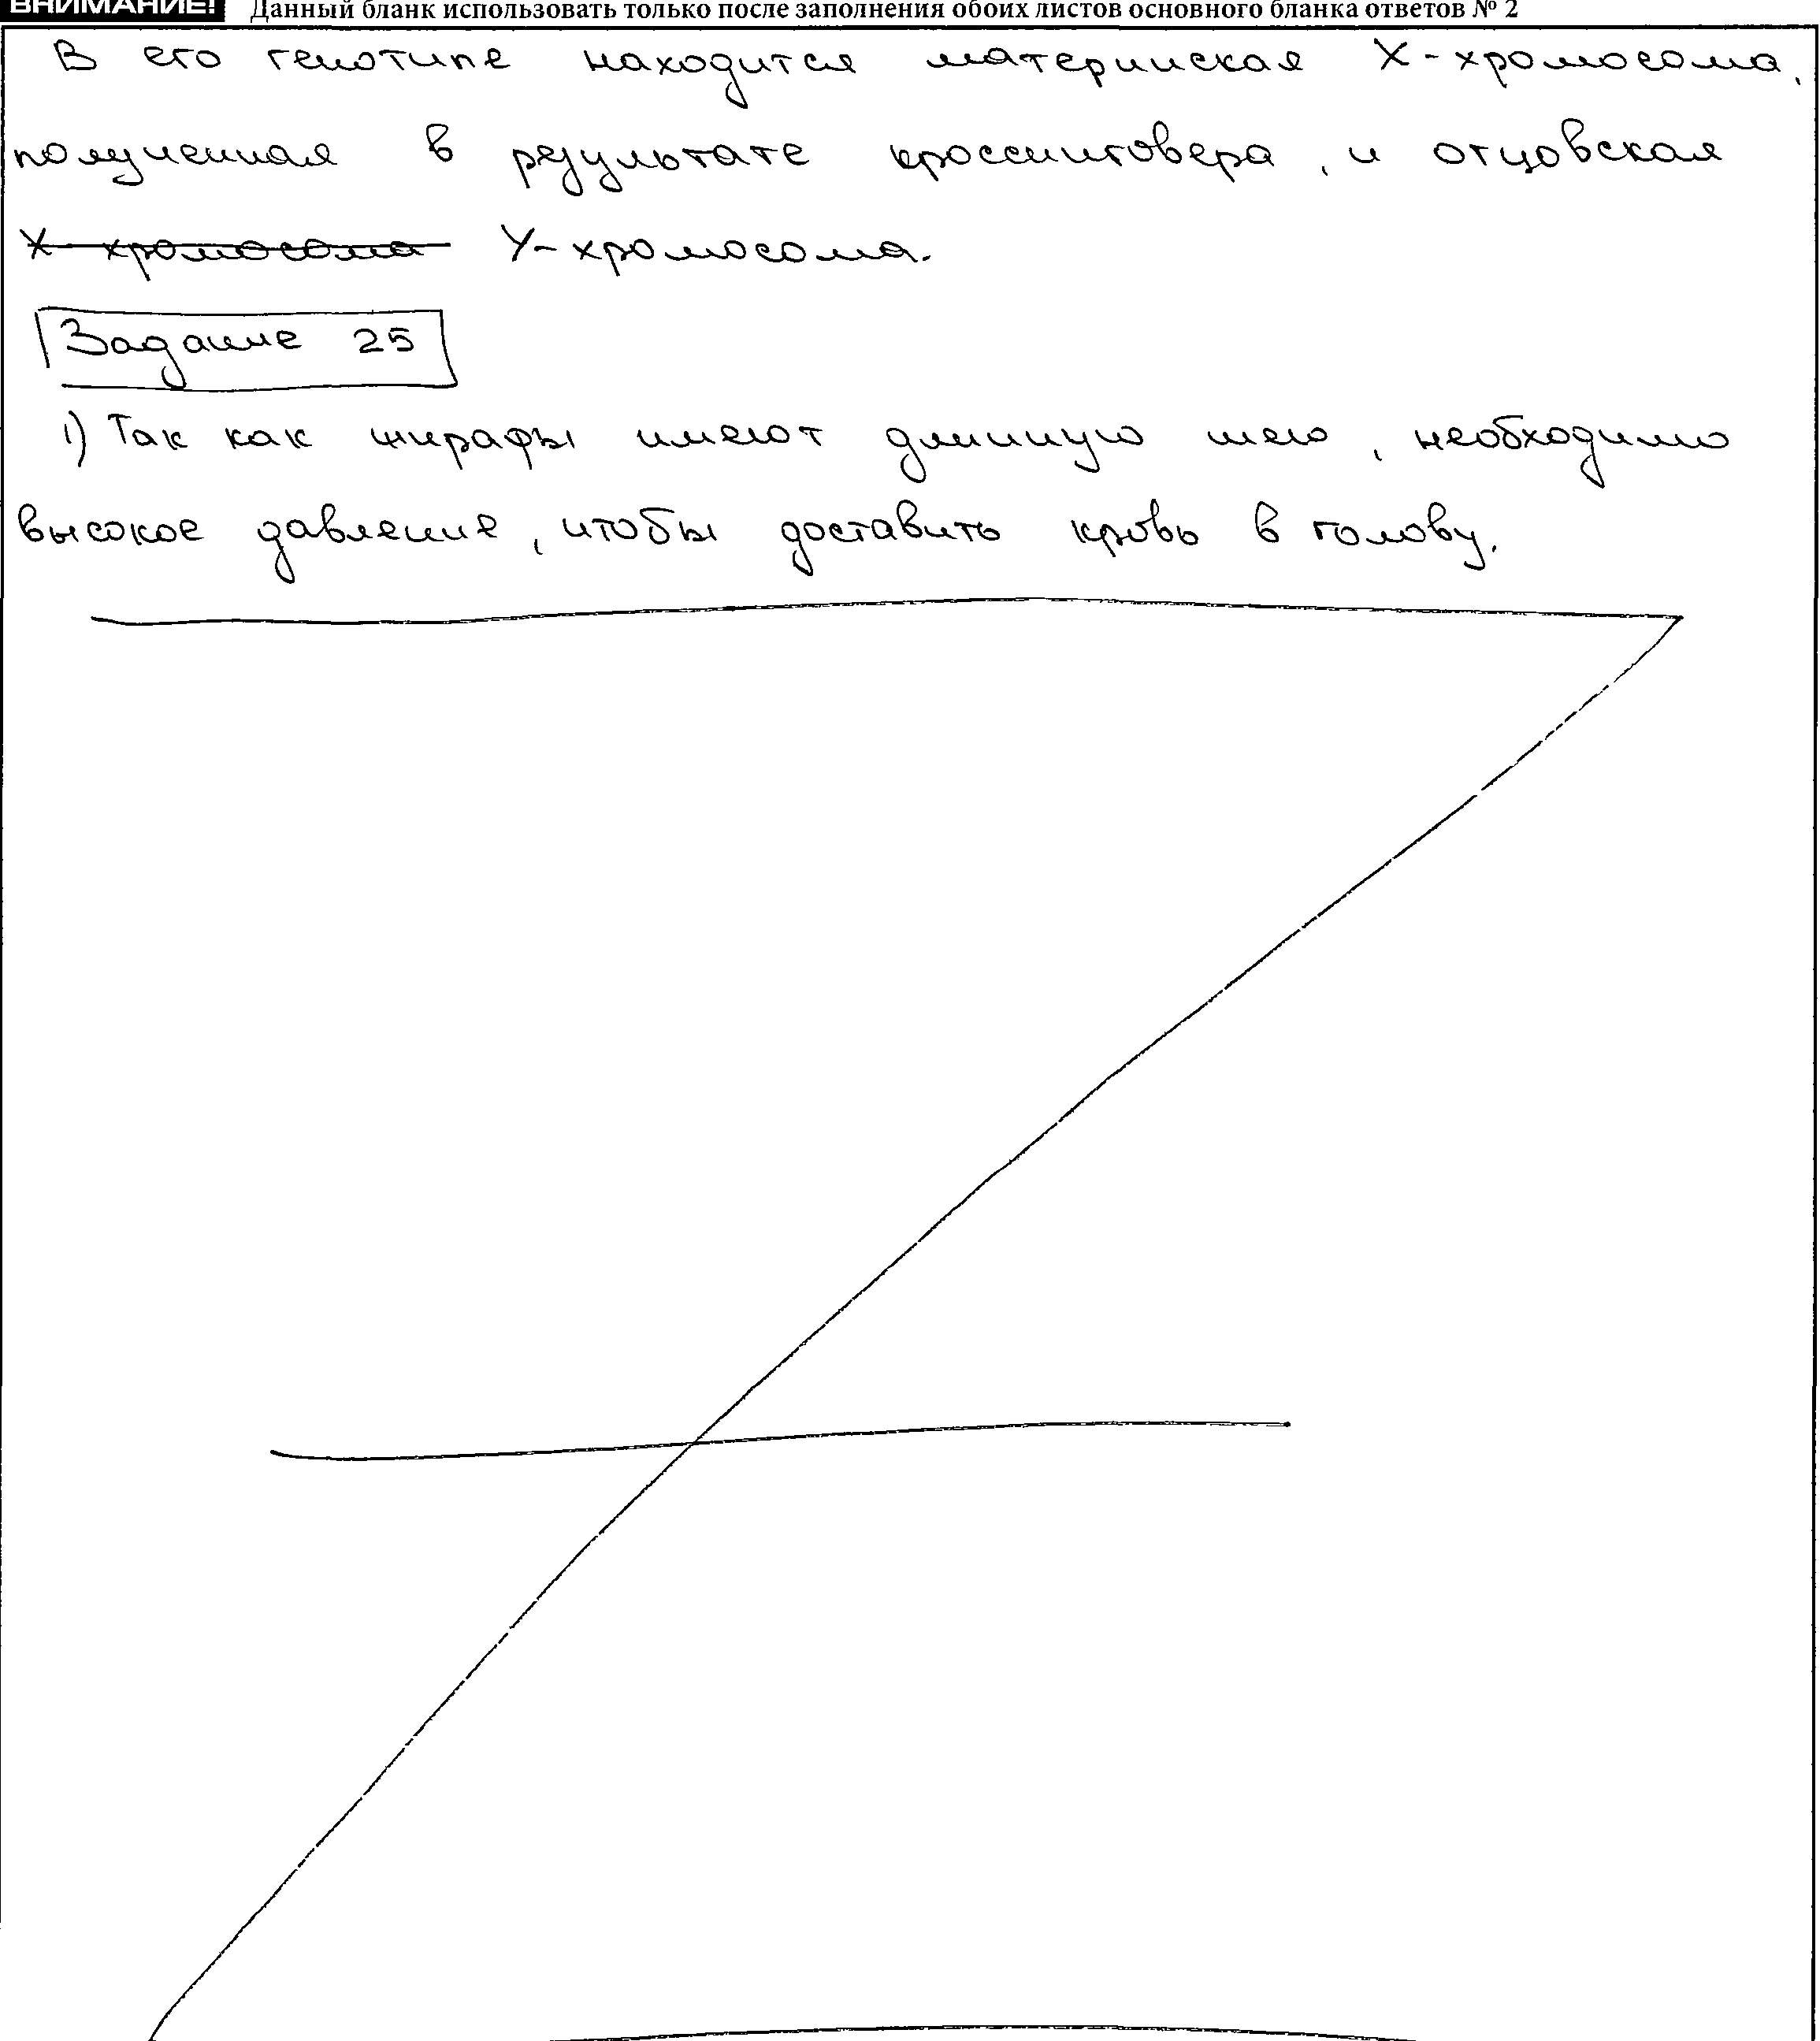 ВНИМАНИЕ! Данный бланк использовать только после заполнения обоих листов основного бланка ответов № 2
В его генотипе находится материнская X-хромосома,
полученная в результате кроссинговера, и отцовская
X-хромосома Y-хромосома.
Задание 25
1) Так как жирафы имеют длинную шею, необходимо
высокое давление, чтобы доставить кровь в голову.